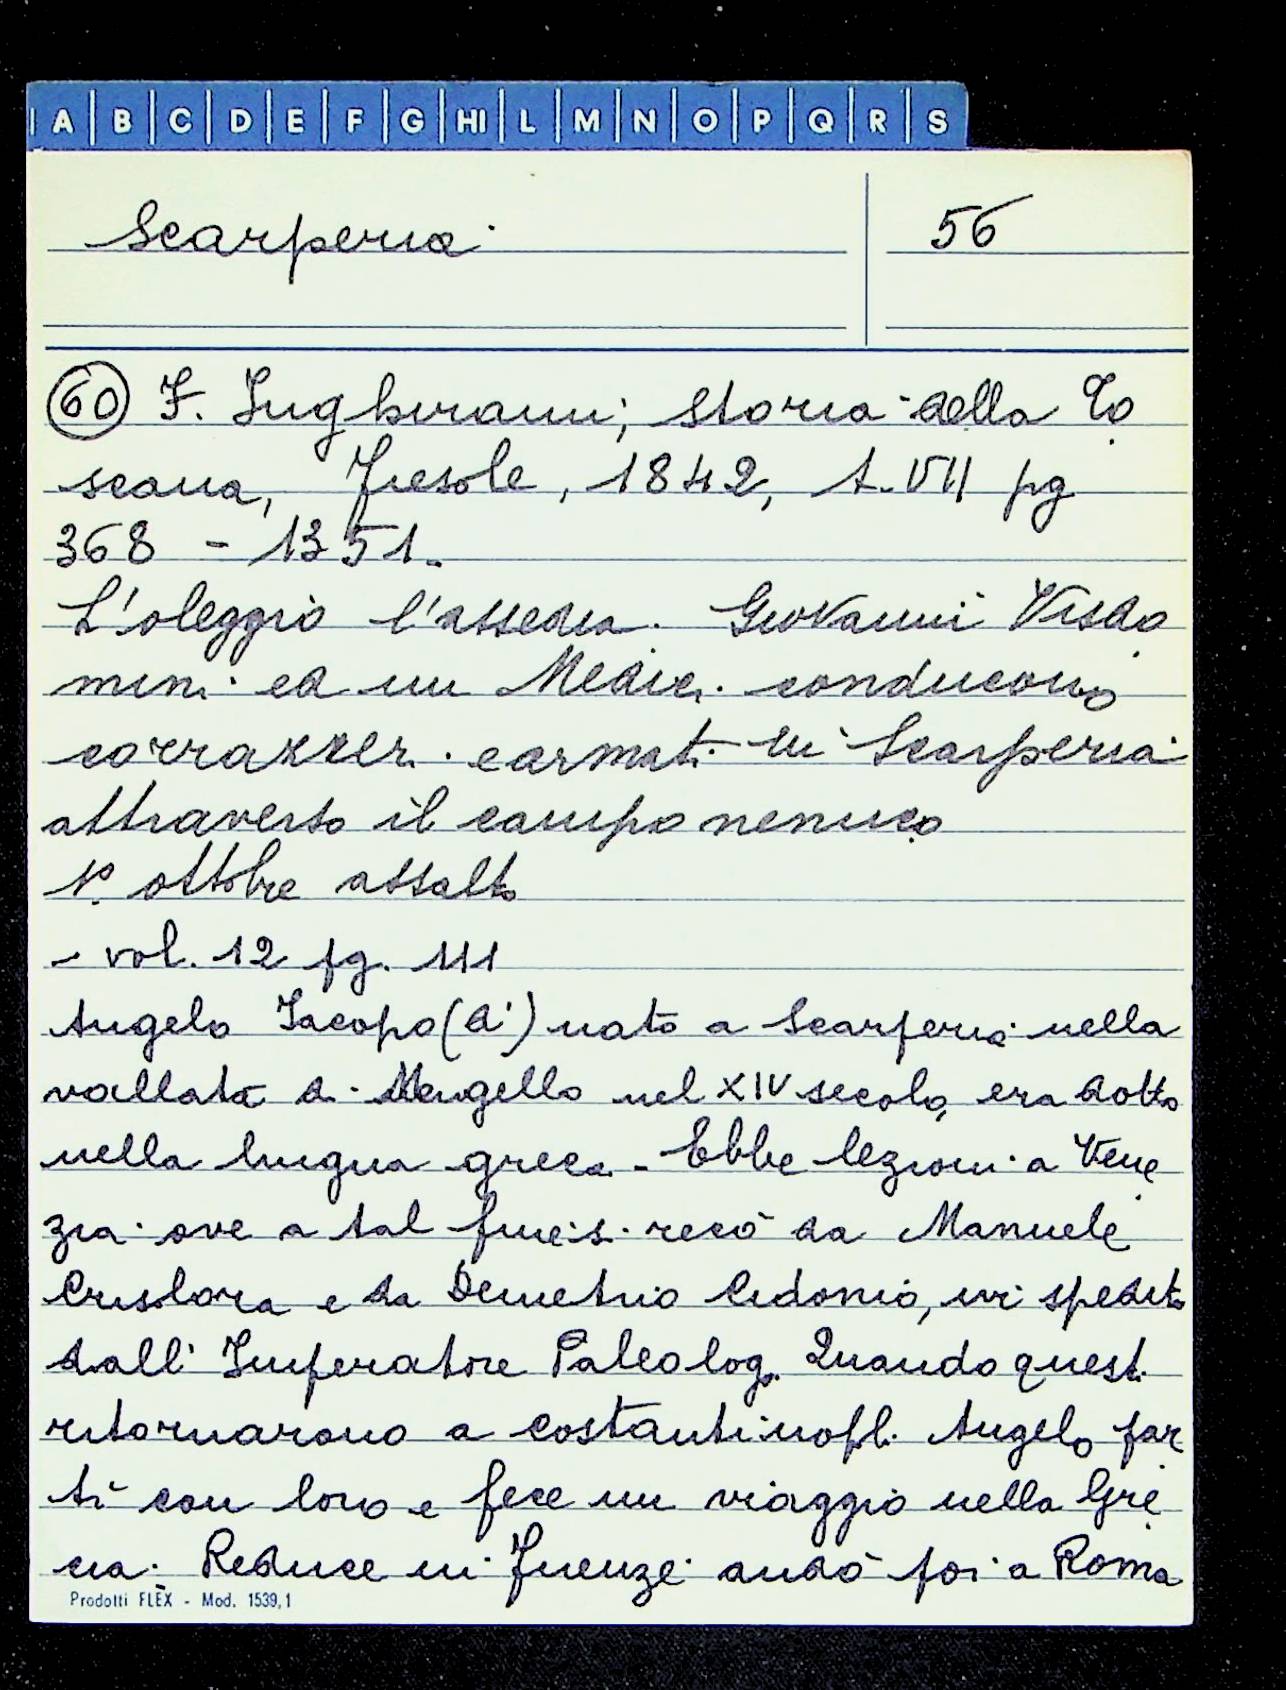 A B C D E F G HI L M N O P Q R S
Scarperia 56
60 F. Inghirami; Storia della To
scana, Fiesole, 1842, t. VII pg
368 - 1351.
L'oleggio l'assedia. Giovanni Visdo
mini ed un Medici conducono
corrazzeri e armati in Scarperia
attraverso il campo nemico
1° ottobre assalto
- vol. 12 pg. 111
Angelo Iacopo (di) nato a Scarperia nella
vallata di Mugello nel XIV secolo, era dotto
nella lingua greca - Ebbe lezioni a Vene
zia ove a tal fine si recò da Manuele
Crisolora e da Demetrio Cidonio, ivi spediti
dall'Imperatore Paleologo. Quando questi
ritornarono a Costantinopoli Angelo par
tì con loro e fece un viaggio nella Gre
cia. Reduce in Firenze andò poi a Roma
Prodotti FLĒX - Mod. 1539,1